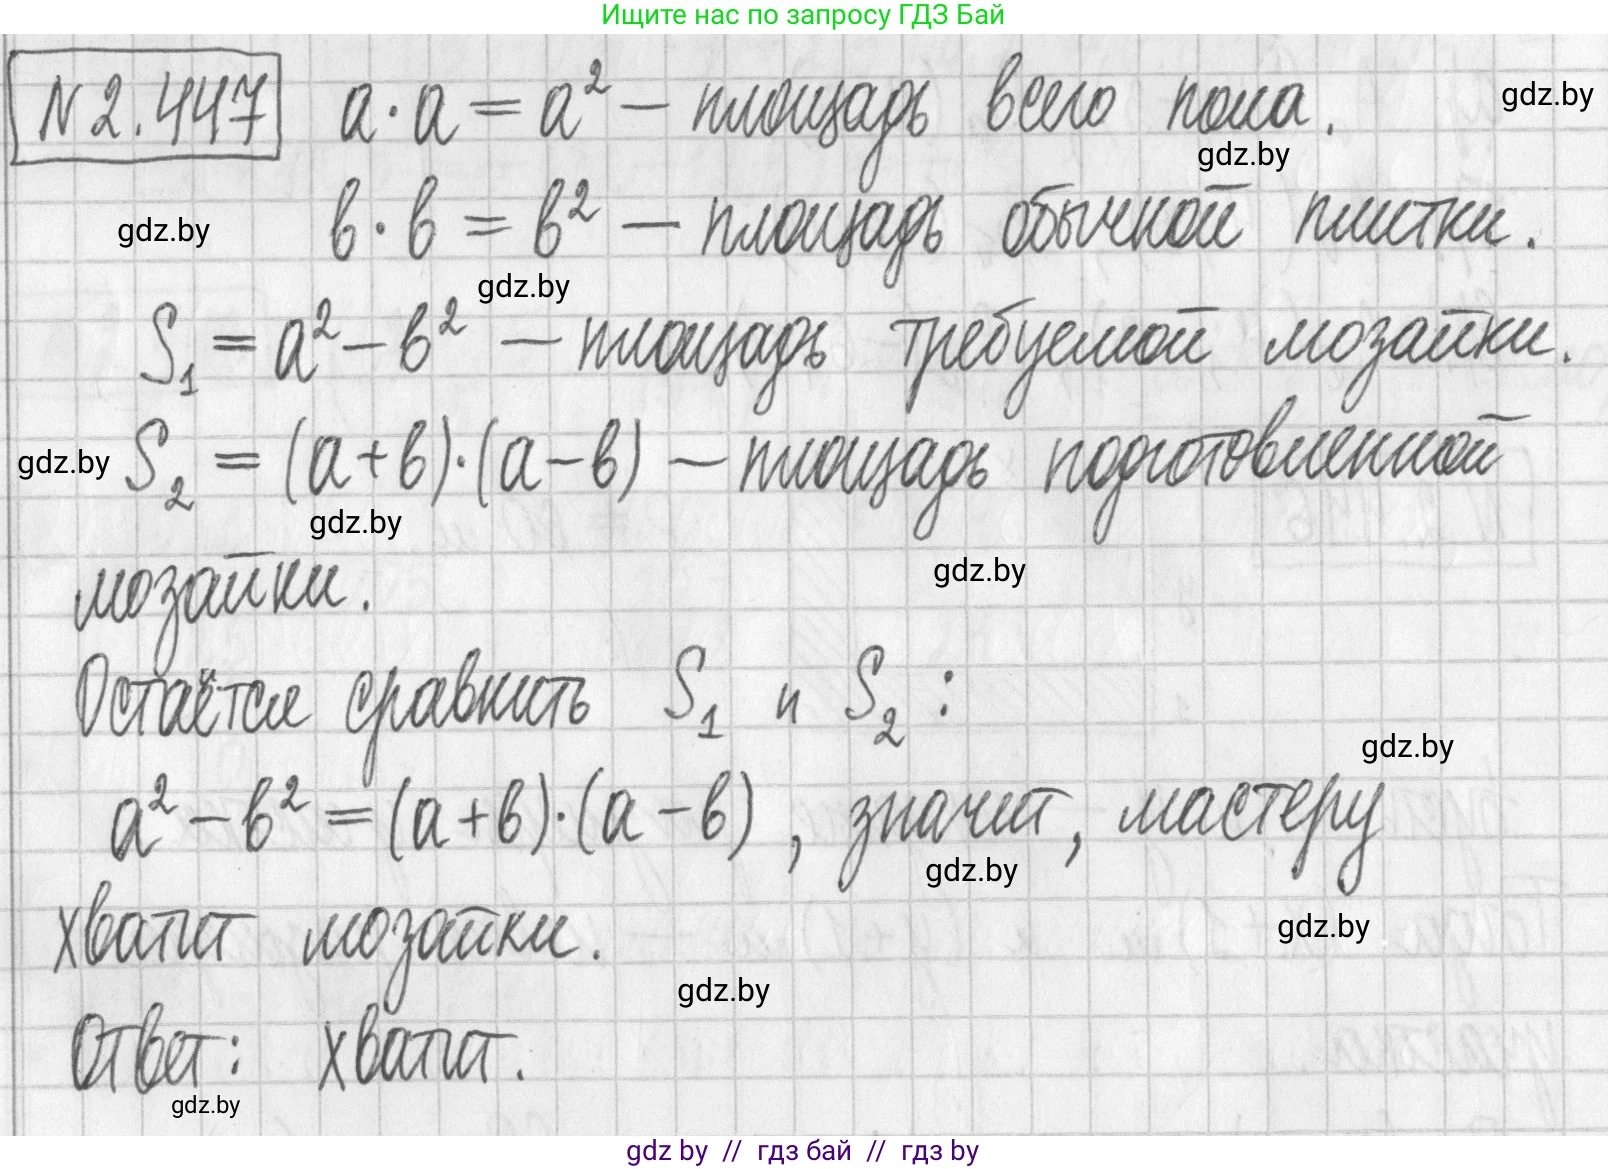 Ищите нас по запросу ГДЗ Бай
N 2.447 a·a = a² – площадь всего пола.
gdz.by
gdz.by
в·в = в² – площадь обычной плитки.
gdz.by
gdz.by
S₁ = a² – в² – площадь требуемой мозайки.
S₂ = (a+в)·(a–в) – площадь подготовленной
gdz.by
gdz.by
мозайки.
gdz.by
Остаётся сравнить S₁ и S₂:
gdz.by
a² – в² = (a+в)·(a–в), значит, мастеру
gdz.by
хватит мозайки.
gdz.by
gdz.by
Ответ: хватит.
gdz.by
gdz by // гдз бай // гдз by